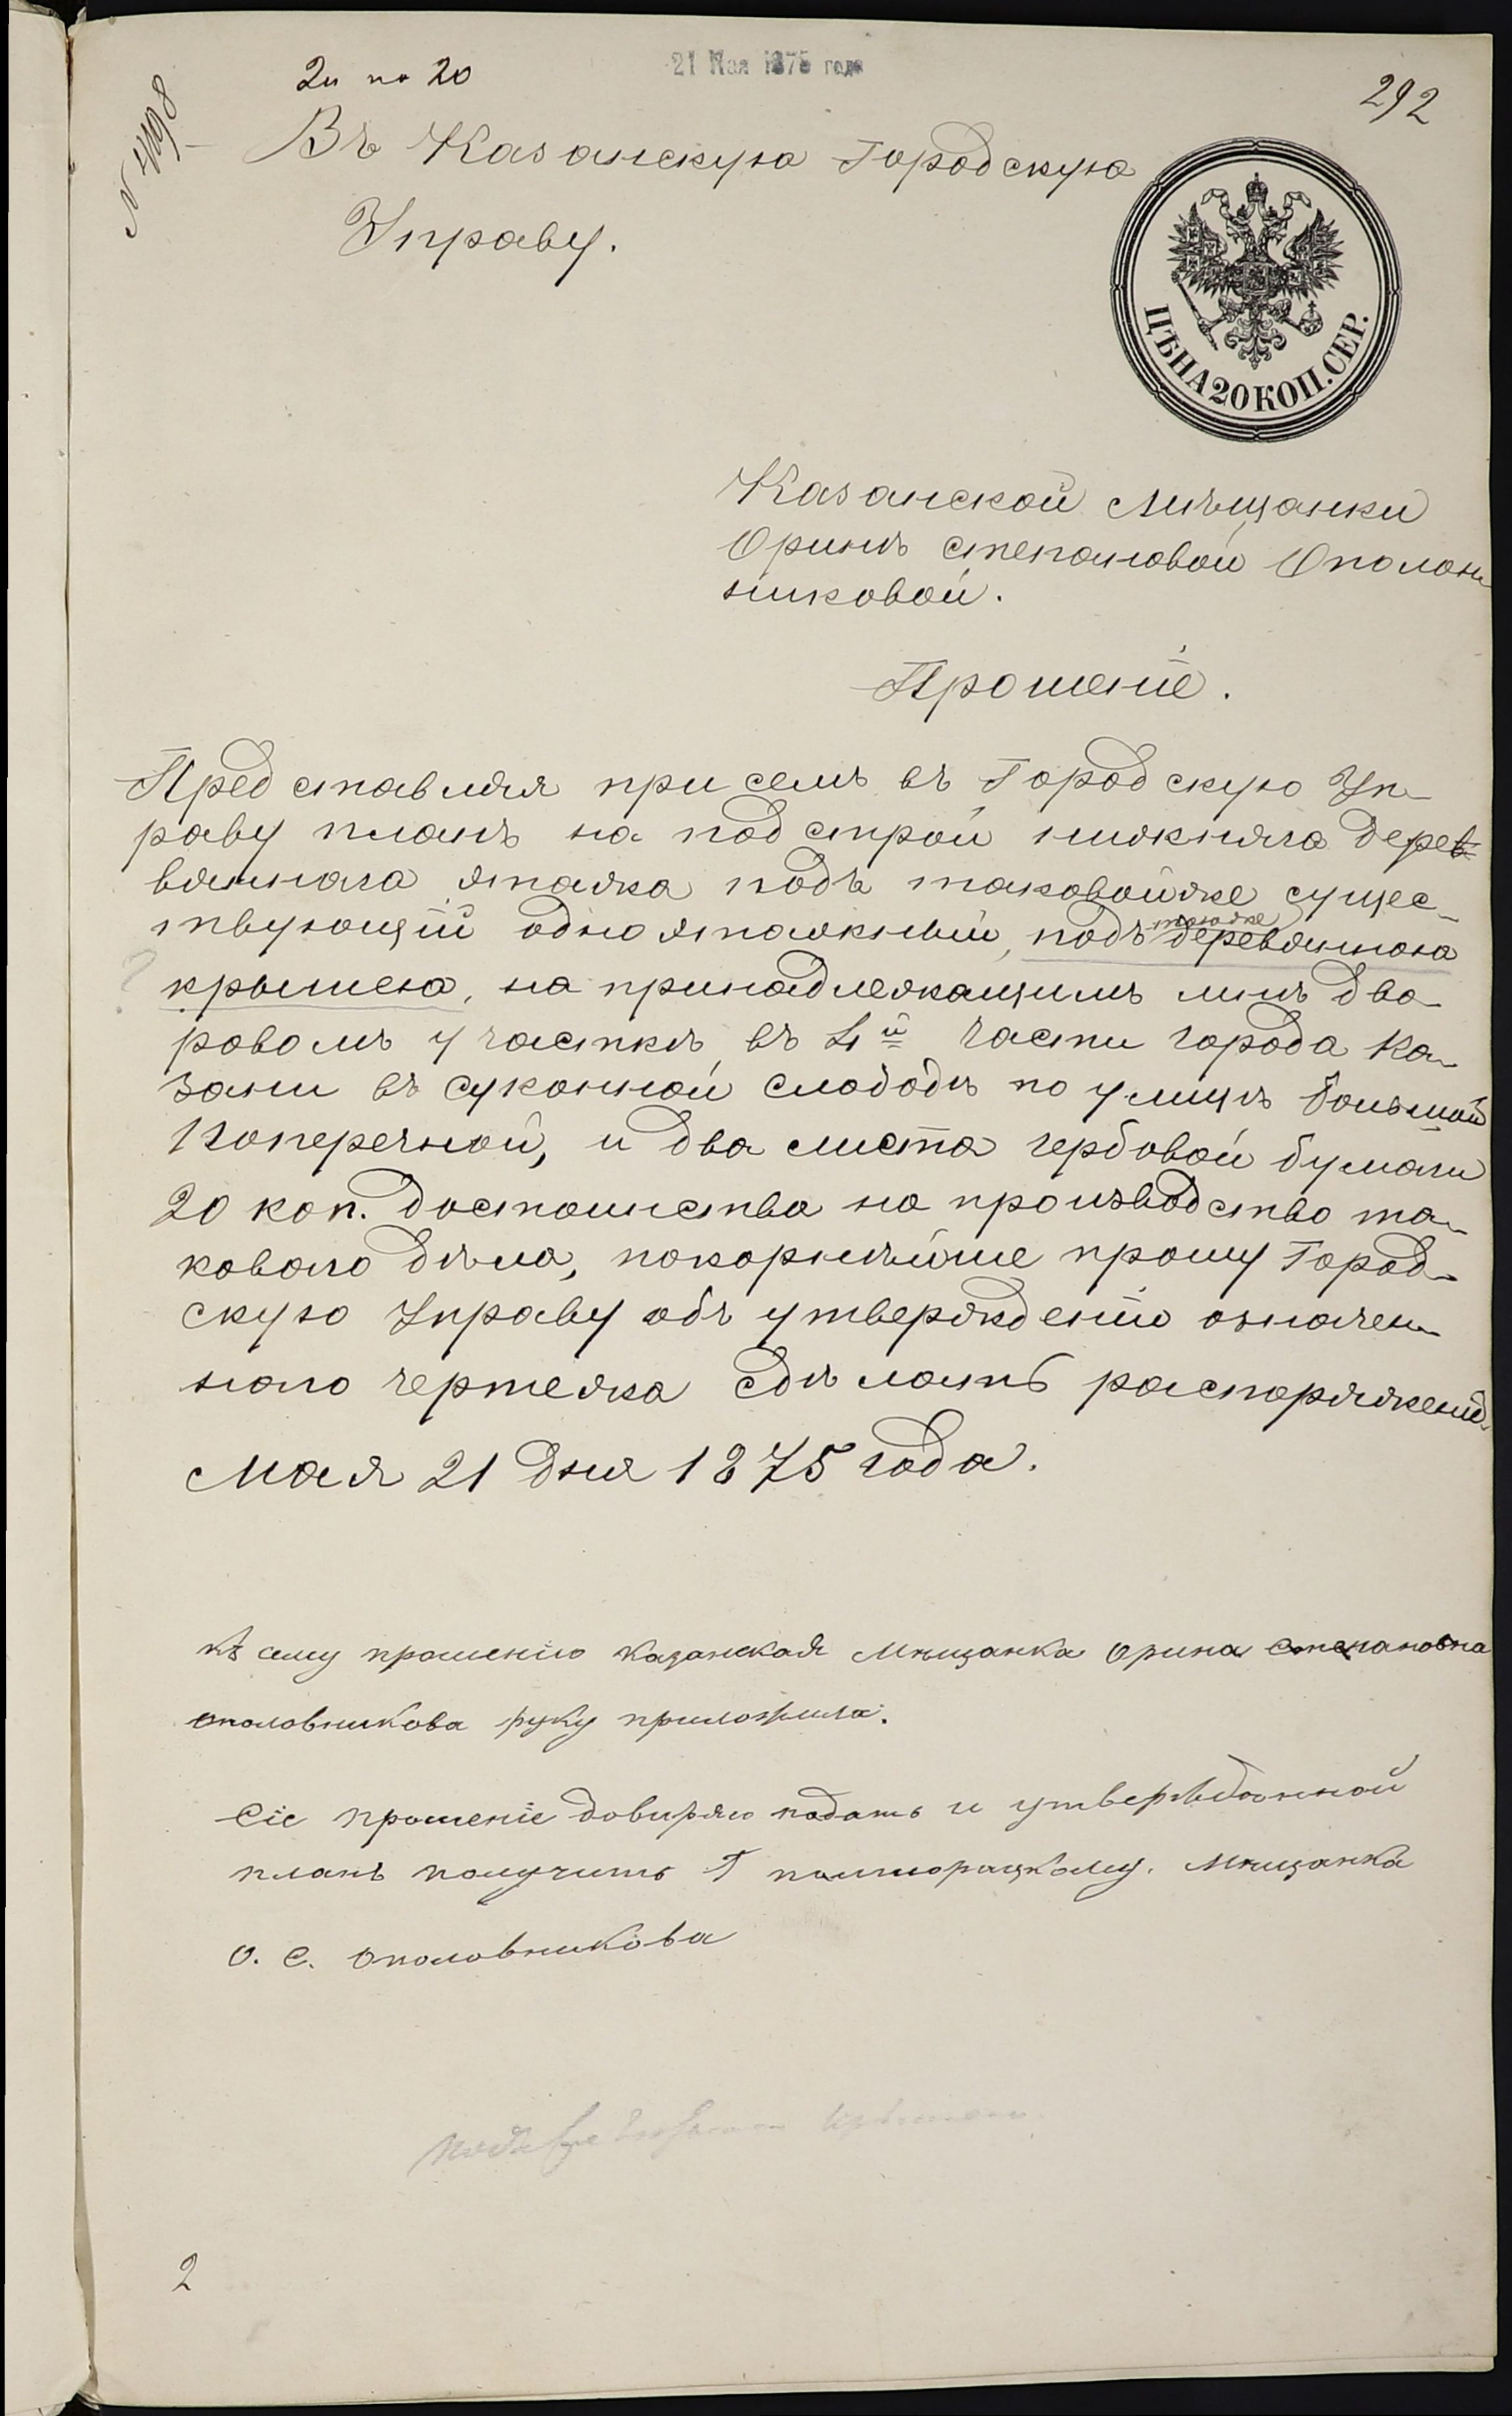 21 Мая 1875 года
2 л по 20
292
№ 4198
Въ Казанскую Городскую
Управу.
ЦѢНА 20 КОП. СЕР.
Казанской мѣщанки
Орины степановой Ополов
никовой.
Прошеніе.
Представляя при семъ въ Городскую Уп-
раву планъ на подстрой нижняго дерев
вяннаго этажа подъ таковойже сущес-
твующій одноэтажный, подъ деревянною
тоюже
крышею, на принадлежащимъ мнѣ дво-
ровомъ участкѣ, въ 4й части города Ка-
зани въ суконной слободѣ по улицѣ большой
Поперечной, и два листа гербовой бумаги
20 коп. достоинства на производство та-
коваго дѣла, покорнѣйше прошу Город-
скую Управу объ утвержденію означен-
наго чертежа сдѣлать распоряженіе.
Мая 21 дня 1875 года.
къ сему прошенію казанская мѣщанка Орина Степановна
ополовникова руку приложила.
Сіе прошеніе довиряю подать и утвержданной
планъ получить Г полторацкому. мѣщанка
О. С. Ополовникова
2